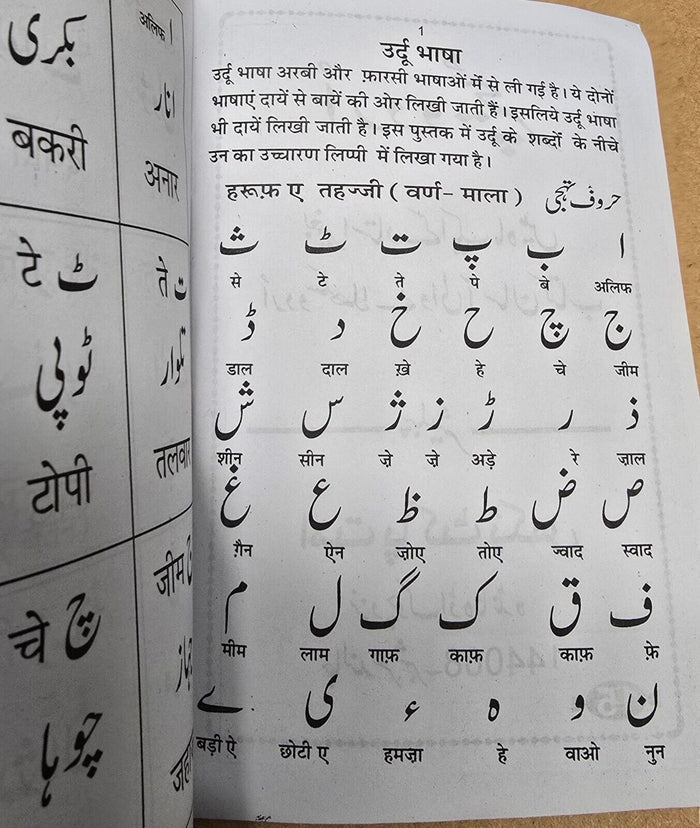 بکری
बकरी
अलिफ ا
انار
अनार
टे ٹ
ٹوپی
टोपी
ते ت
تلوار
तलवार
चे چ
چوہا
जीम
1
उर्दू भाषा
उर्दू भाषा अरबी और फ़ारसी भाषाओं में से ली गई है। ये दोनों
भाषाएं दायें से बायें की ओर लिखी जाती हैं। इसलिये उर्दू भाषा
भी दायें लिखी जाती है। इस पुस्तक में उर्दू के शब्दों के नीचे
उन का उच्चारण लिप्पी में लिखा गया है।
हरूफ़ ए तहज्जी ( वर्ण- माला ) حروف تہجی
ا ب پ ت ٹ ث
से टे ते पे बे अलिफ
ج چ ح خ د ڈ
डाल दाल ख़े हे चे जीम
ذ ر ڑ ز ژ س ش
शीन सीन ज़े ज़े अड़े रे ज़ाल
ص ض ط ظ ع غ
ग़ैन ऐन ज़ोए तोए ज्वाद स्वाद
ف ق ک گ ل م
मीम लाम गाफ़ काफ़ काफ़ फ़े
ن و ہ ء ی ے
बड़ी ऐ छोटी ए हमज़ा हे वाओ नुन